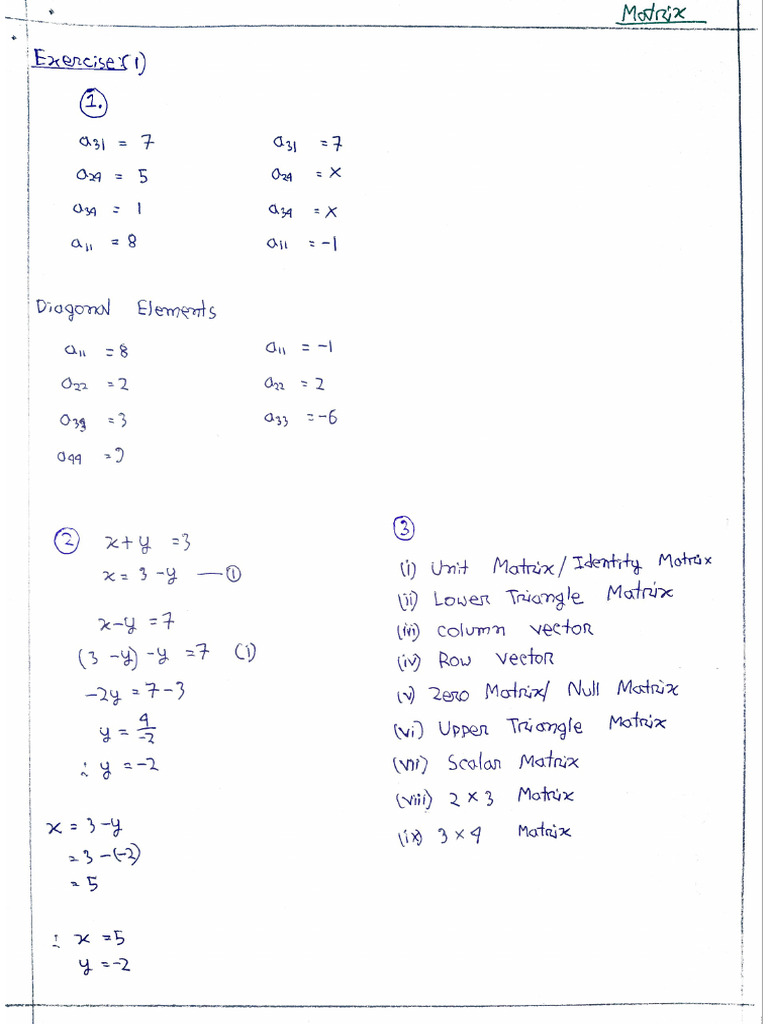 Matrix
Exercise:(1)
1.
a31 = 7
a24 = 5
a34 = 1
a11 = 8
a31 = 7
a24 = x
a34 = x
a11 = -1
Diagonal Elements
a11 = 8
a22 = 2
a33 = 3
a44 = 9
a11 = -1
a22 = 2
a33 = -6
2
x + y = 3
x = 3 - y — ①
x - y = 7
(3 - y) - y = 7 (i)
-2y = 7 - 3
y = 4/-2
∴ y = -2
x = 3 - y
= 3 - (-2)
= 5
∴ x = 5
y = -2
3
(i) Unit Matrix/Identity Matrix
(ii) Lower Triangle Matrix
(iii) column vector
(iv) Row vector
(v) Zero Matrix/ Null Matrix
(vi) Upper Triangle Matrix
(vii) Scalar Matrix
(viii) 2 × 3 Matrix
(ix) 3 × 4 Matrix